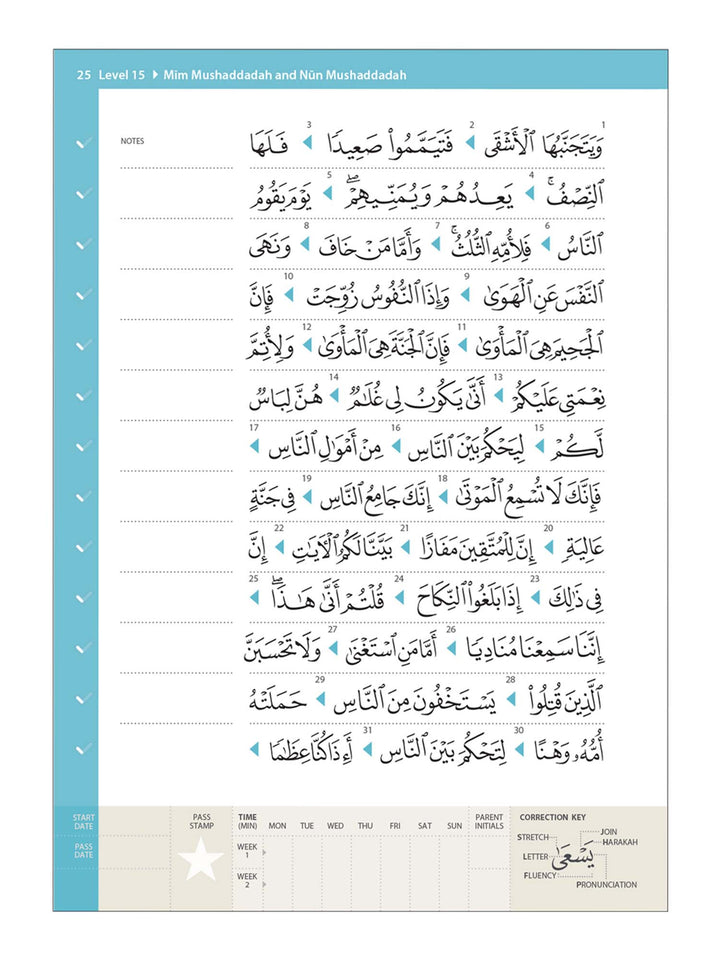 25 Level 15 ▸ Mīm Mushaddadah and Nūn Mushaddadah
NOTES
1 وَيَتَجَنَّبُهَا ٱلْأَشْقَى 2 فَتَيَمَّمُوا۟ صَعِيدًا 3 فَلَهَا
ٱلنِّصْفُ ۚ 4 يَعِدُهُمْ وَيُمَنِّيهِمْ ۖ 5 يَوْمَ يَقُومُ
ٱلنَّاسُ 6 فَلِأُمِّهِ ٱلثُّلُثُ ۚ 7 وَأَمَّا مَنْ خَافَ 8 وَنَهَى
ٱلنَّفْسَ عَنِ ٱلْهَوَىٰ 9 وَإِذَا ٱلنُّفُوسُ زُوِّجَتْ 10 فَإِنَّ
ٱلْجَحِيمَ هِىَ ٱلْمَأْوَىٰ 11 فَإِنَّ ٱلْجَنَّةَ هِىَ ٱلْمَأْوَىٰ 12 وَلِأُتِمَّ
نِعْمَتِى عَلَيْكُمْ 13 أَنَّىٰ يَكُونُ لِى غُلَٰمٌ 14 هُنَّ لِبَاسٌ
لَّكُمْ 15 لِيَحْكُمَ بَيْنَ ٱلنَّاسِ 16 مِنْ أَمْوَٰلِ ٱلنَّاسِ 17
فَإِنَّكَ لَا تُسْمِعُ ٱلْمَوْتَىٰ 18 إِنَّكَ جَامِعُ ٱلنَّاسِ 19 فِى جَنَّةٍ
عَالِيَةٍ 20 إِنَّ لِلْمُتَّقِينَ مَفَازًا 21 بَيَّنَّا لَكُمُ ٱلْءَايَٰتِ 22 إِنَّ
فِى ذَٰلِكَ 23 إِذَا بَلَغُوا۟ ٱلنِّكَاحَ 24 قُلْتُمْ أَنَّىٰ هَٰذَا ۖ 25
إِنَّنَا سَمِعْنَا مُنَادِيًا 26 أَمَّا مَنِ ٱسْتَغْنَىٰ 27 وَلَا تَحْسَبَنَّ
ٱلَّذِينَ قُتِلُوا۟ 28 يَسْتَخْفُونَ مِنَ ٱلنَّاسِ 29 حَمَلَتْهُ
أُمُّهُۥ وَهْنًا 30 لِتَحْكُمَ بَيْنَ ٱلنَّاسِ 31 أَءِذَا كُنَّا عِظَٰمًا
START DATE
PASS DATE
PASS STAMP
TIME (MIN) MON TUE WED THU FRI SAT SUN PARENT INITIALS
WEEK 1
WEEK 2
CORRECTION KEY
STRETCH
JOIN
HARAKAH
LETTER
يَسْعَىٰ
FLUENCY
PRONUNCIATION